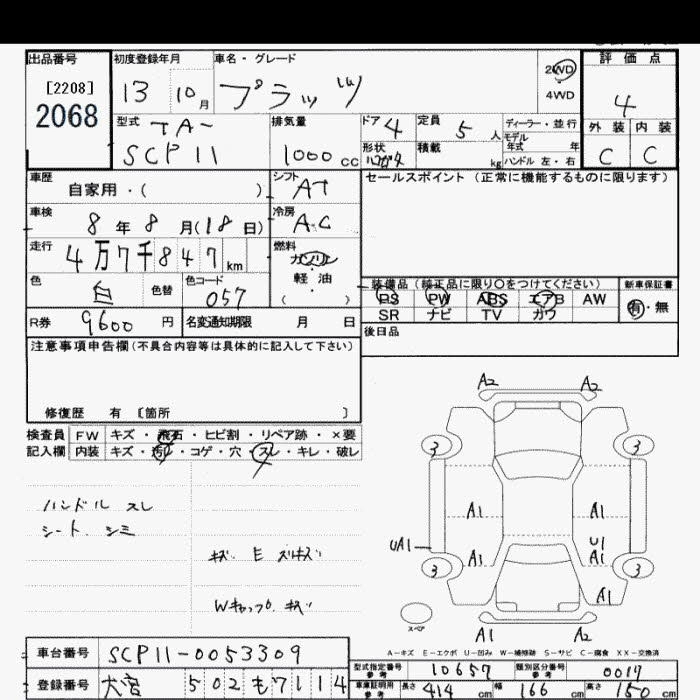 出品番号 初度登録年月 車名・グレード 評価点
[2208] 13 10月 プラッツ 2WD 4
2068 4WD
型式 TA- 排気量 ドア 4 定員 5人 ディーラー・並行 外装 内装
SCP11 1000cc 形状 積載 kg モデル年式 年 ハンドル 左・右 C C
車歴 自家用・( ) シフト AT セールスポイント(正常に機能するものに限ります)
車検 8年8月(18日) 冷房 A.C
走行 4万7千847km 燃料 ガソリン
軽油
( )
色 白 色替 色コード 057 装備品(純正品に限り○をつけてください) 新車保証書
PS PW ABS エアB AW 有・無
SR ナビ TV カワ
R券 9600円 名変通知期限 月 日 後日品
注意事項申告欄(不具合内容等は具体的に記入して下さい)
修復歴 有 〔箇所 〕
検査員 FW キズ・飛石・ヒビ割・リペア跡・×要
記入欄 内装 キズ・汚レ・コゲ・穴・スレ・キレ・破レ
A2 A2
3 3
ハンドル スレ
シート シミ
A1 A1
UA1 A1 U1
A1
キズ E スリキズ
3 3
Wキャップ キズ
A1
スペア
A1 A2
A-キズ E-エクボ U-凹み W-補修跡 S-サビ C-腐食 XX-交換済
車台番号 SCP11-0053309
型式指定番号 参考 10657 類別区分番号 参考 0017
登録番号 大宮 502 も 7114
車庫証明用 参考 長さ 414cm 幅 166cm 高さ 150cm